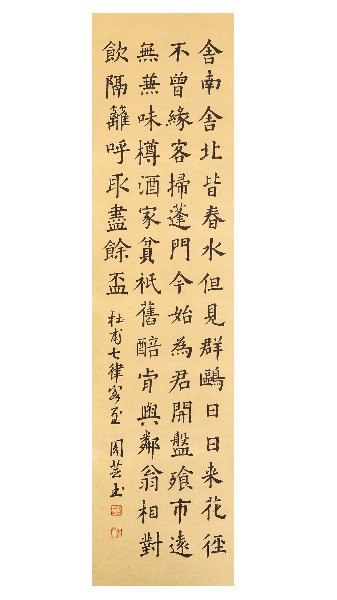 舍南舍北皆春水但見群鷗日日来花徑
不曾緣客掃蓬門今始為君開盤飧市遠
無兼味樽酒家貧祇舊醅肯與鄰翁相對
飲隔籬呼取盡餘盃
杜甫七律客至 周芸玉